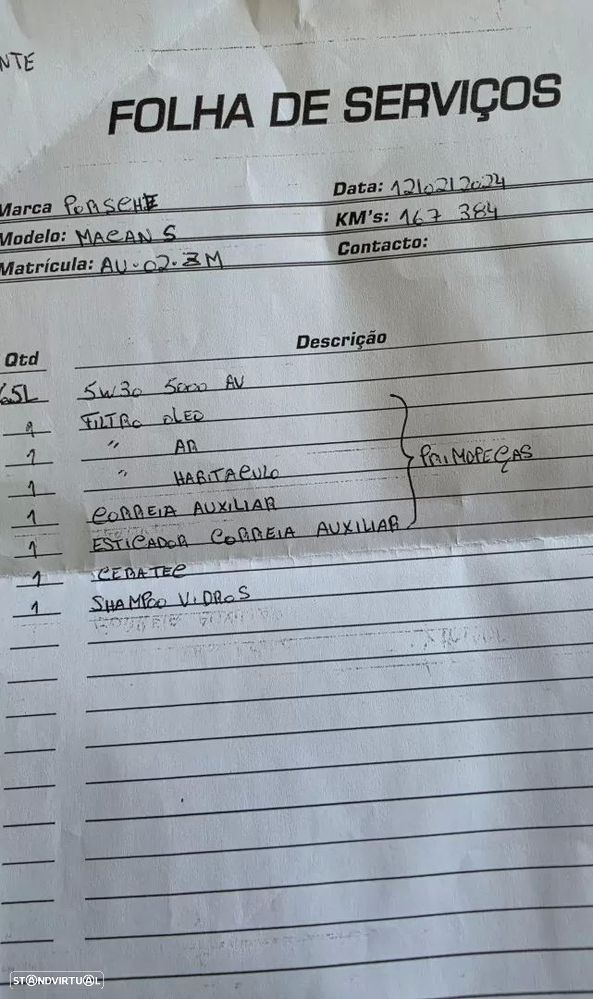 NTE
FOLHA DE SERVIÇOS
Marca PORSCHE
Data: 12/02/2024
Modelo: MACAN S
KM's: 167 384
Matrícula: AU-02-ZM
Contacto:
Qtd Descrição
5W30 5000 AV
1 FILTRO OLEO
1 " AR
1 " HABITACULO
PRIMOPEÇAS
1 CORREIA AUXILIAR
1 ESTICADOR CORREIA AUXILIAR
1 CERATEC
1 SHAMPOO VIDROS
STANDVIRTUAL